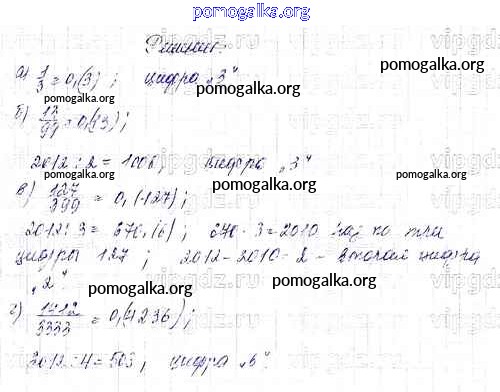 pomogalka.org
Решение.
а) 1/3 = 0,(3); цифра „3“
pomogalka.org
б) 13/99 = 0,(13);
pomogalka.org
2012 : 2 = 1006, цифра „3“
pomogalka.org
в) 127/999 = 0,(127);
2012 : 3 = 670,(6); 670 · 3 = 2010 раз по три
цифры 127; 2012 - 2010 = 2 - вторая цифра
„2“
pomogalka.org
г) 1412/3333 = 0,(4236);
pomogalka.org
2012 : 4 = 503, цифра „6“.
pomogalka.org